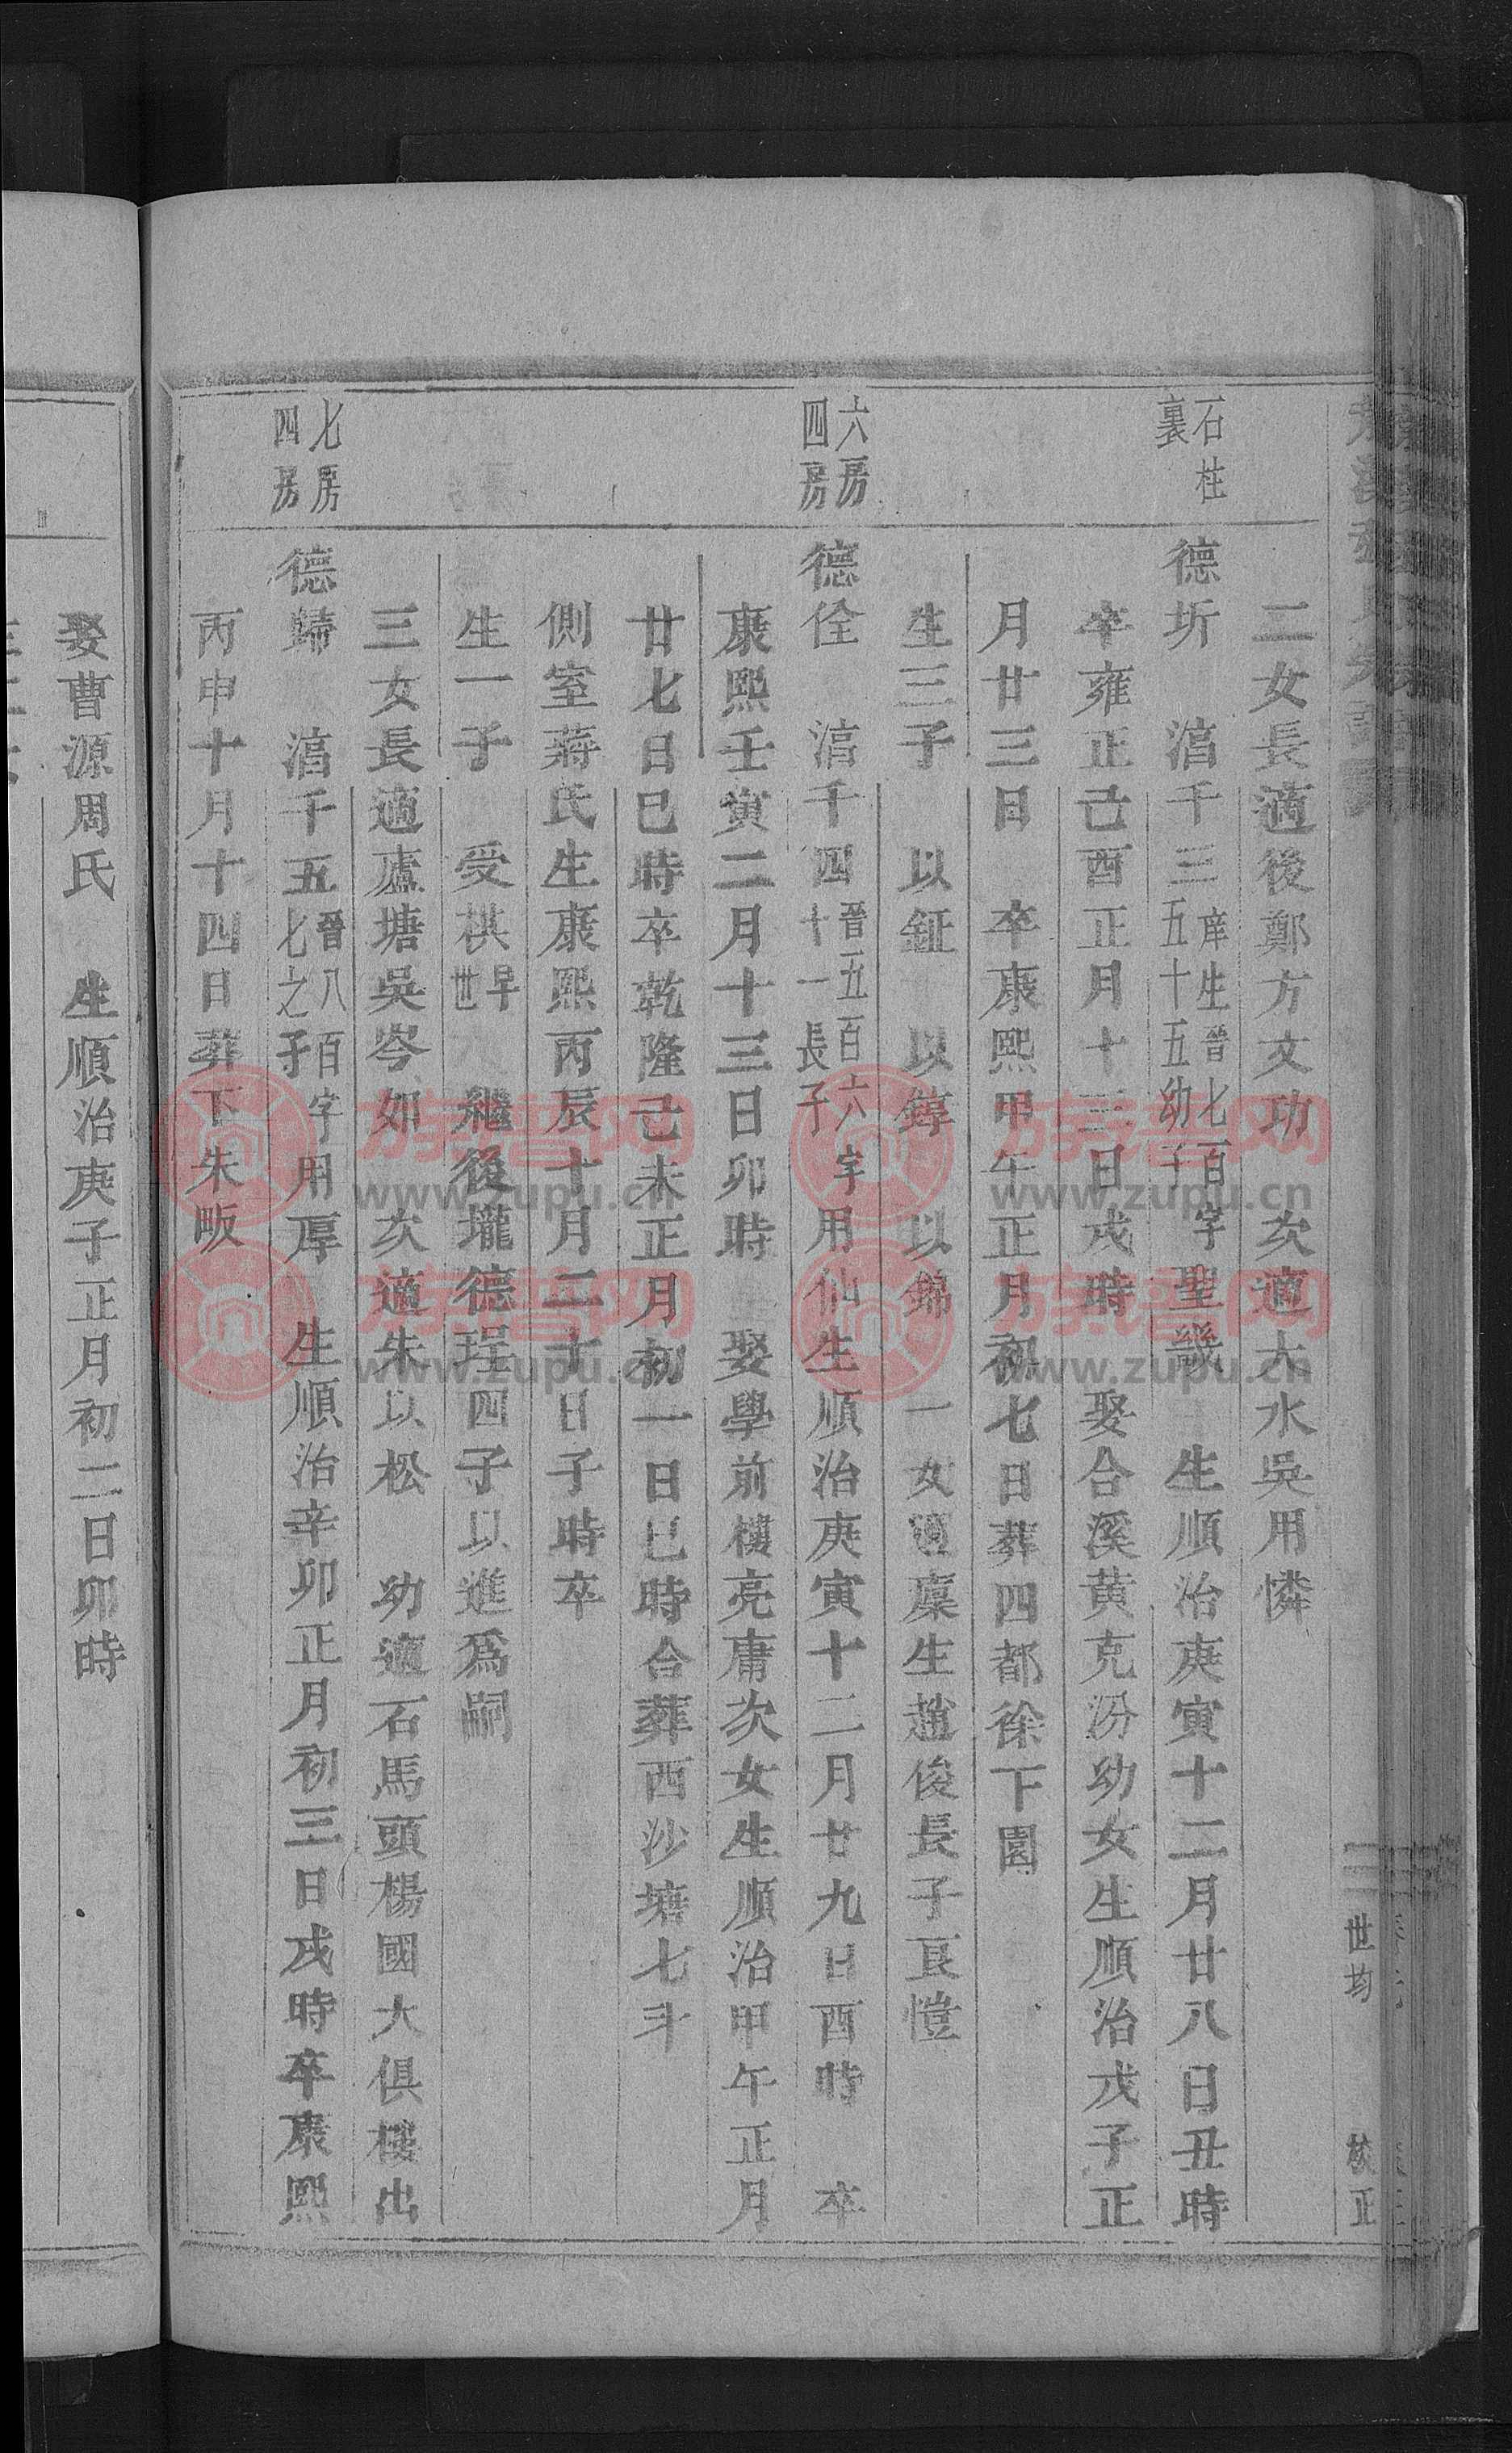 世均 校正
二女長適後鄭方文功 次適大水吳用憐
石柱
裏
德圻 湻千三 庠生晉七百字
五十五幼子
聖畿 生順治庚寅十二月廿八日丑時
卒雍正己酉正月十三日戌時 娶合溪黄克汾幼女生順治戊子正
月廿三日 卒康熙甲午正月初七日葬四都徐下園
生三子 以鉦 以錞 以錦 一女適廩生趙俊長子亙愷
六房
四房
德佺 湻千四 晉五百六字
十一長子
用仙生順治庚寅十二月廿九日酉時 卒
康熙壬寅二月十三日卯時 娶學前樓亮庸次女生順治甲午正月
廿七日巳時卒乾隆己未正月初一日巳時合葬西沙塘七斗
側室蔣氏生康熙丙辰十月二十日子時卒
生一子 受棋 早
世
繼後壠德珵四子以進爲嗣
三女長適廬塘吳岑如 次適朱以松 幼適石馬頭楊國大俱樓出
七房
四房
德歸 湻千五 晉八百字
七之子
用厚 生順治辛卯正月初三日戌時卒康熙
丙申十月十四日葬下朱畈
娶曹源周氏 生順治庚子正月初二日卯時
族譜网
www.zupu.cn
族譜网
www.zupu.cn
族譜网
www.zupu.cn
族譜网
www.zupu.cn